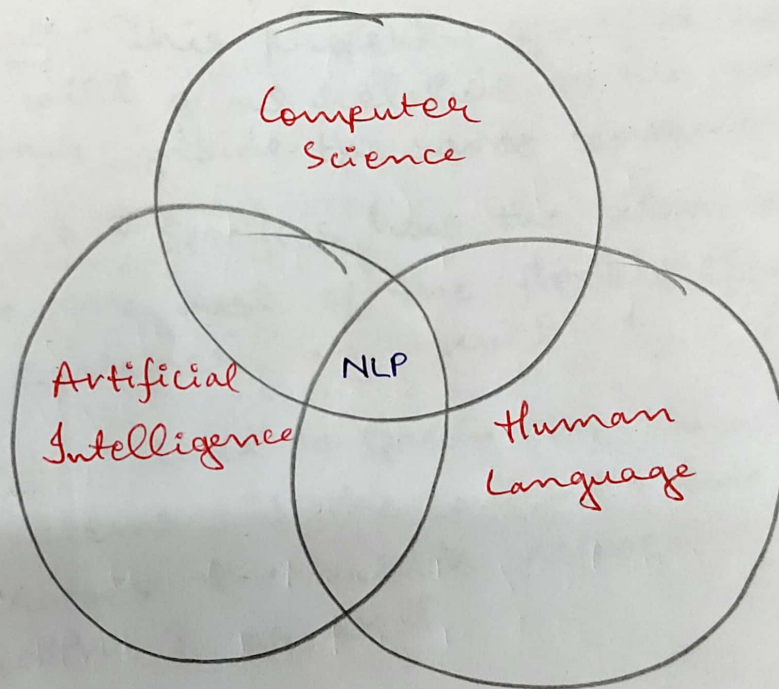 Computer
Science
Artificial
Intelligence
NLP
Human
Language